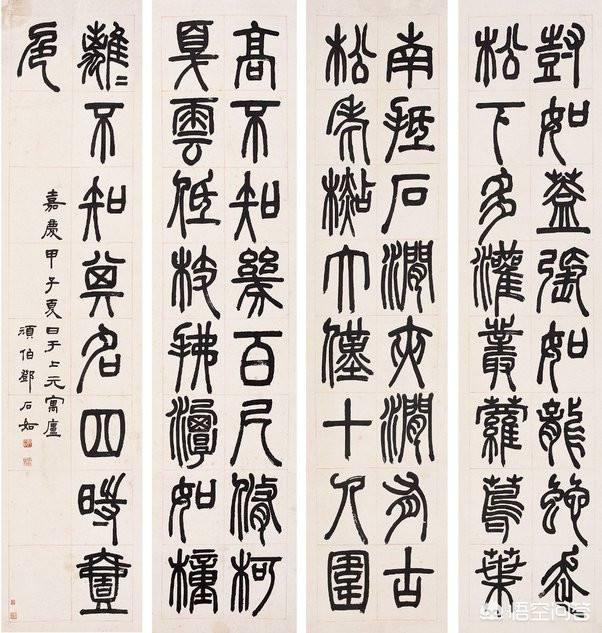 尌如蓋張如龍蛇走
松下多灌叢蘿蔦葉
南抵石澗夾澗有古
松老檆大僅十人圍
高不知幾百尺修柯
戛雲低枝拂潭如幢
離〻不知其名四時壹
色
嘉慶甲子夏日于上元寓廬
頑伯鄧石如
悟空问答